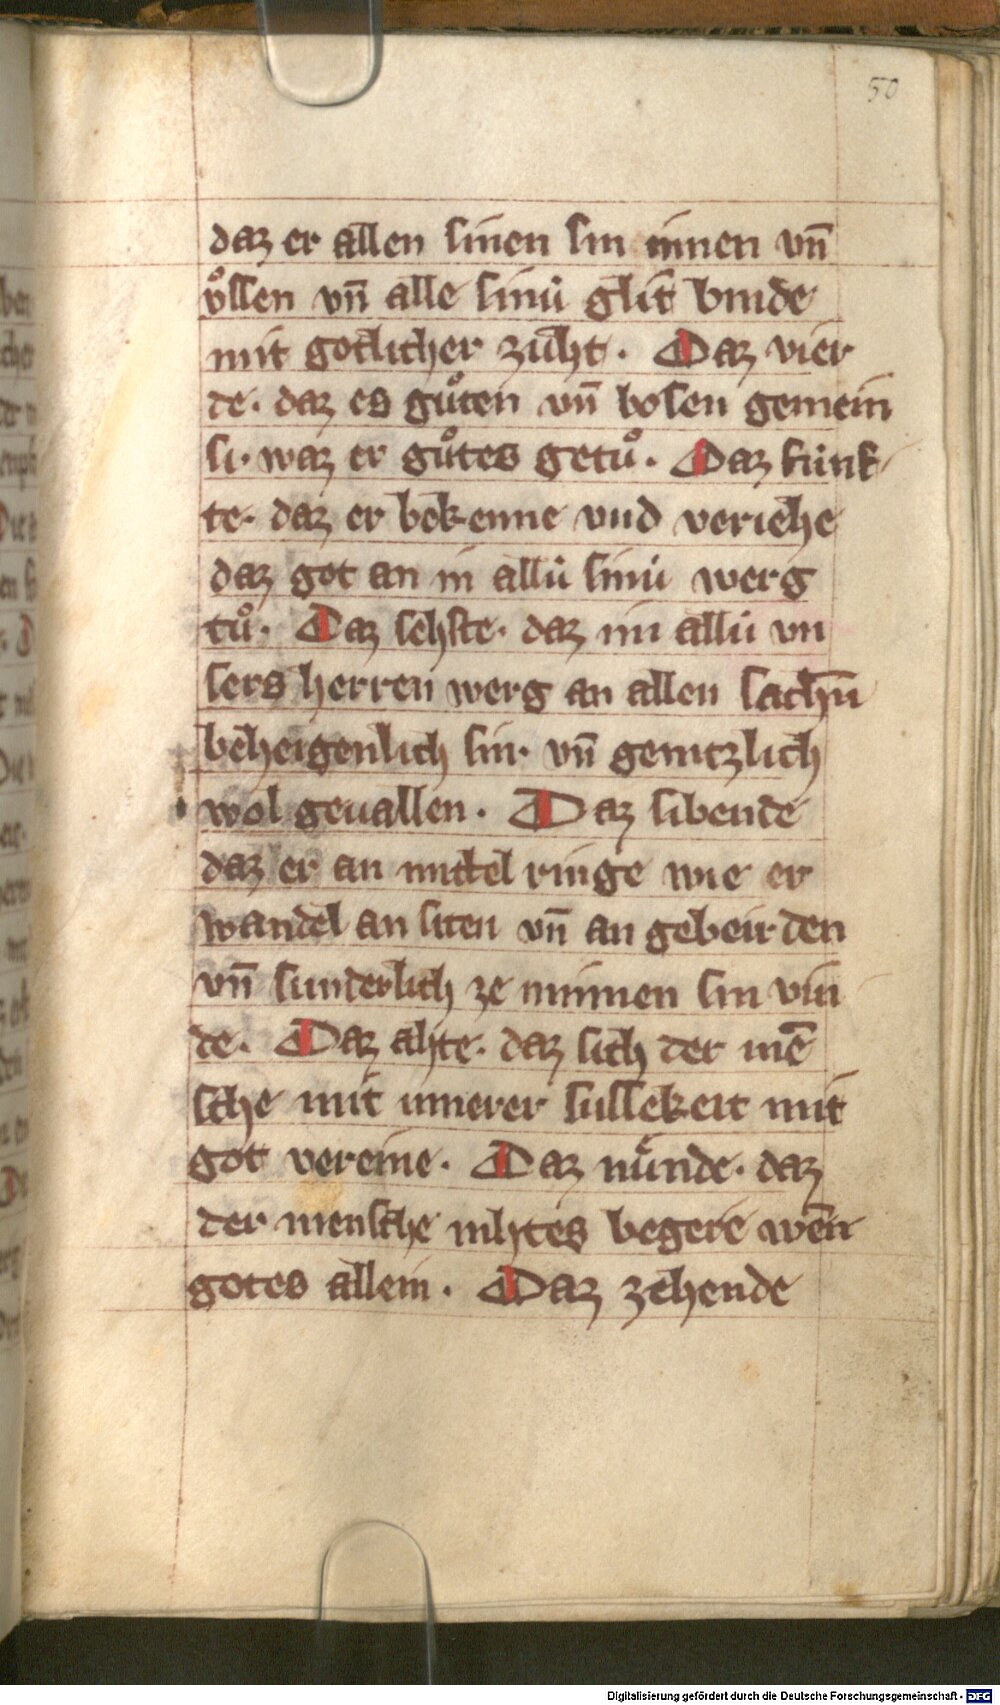 50
daz er allen sinen sin innen vn̄
vͦssen vn̄ alle sinú glit binde
mit gotlicher zuht. Daz vier
te. daz es guͦten vn̄ bosen gemein
si. waz er guͦtes getuͦ. Daz funf
te. daz er bekenne vnd veriehe
daz got an in allú sinú werg
tuͦ. Daz sehste. daz im allú vn
sers herren werg an allen sachn̄
behegenlich sin. vn̄ genitzlich
wol geuallen. Daz sibende
daz er an mittel ringe wie er
wandel an siten vn̄ an geberden
vn̄ sunderlich ze minnen sin vin
de. Daz ahte. daz sich der mē
sche mit innerer sussekeit mit
got vereine. Daz núnde. daz
der mensche nihtes begere wēn
gotes allein. Daz zehende
Digitalisierung gefördert durch die Deutsche Forschungsgemeinschaft - DFG